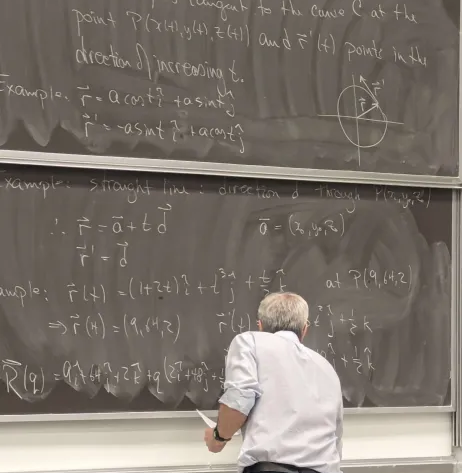 tangent to the curve C at the
point P(x(t), y(t), z(t)) and r⃗'(t) points in the
direction of increasing t.
Example: r⃗ = a cos t î + a sin t ĵ
r⃗' = -a sin t î + a cos t ĵ
r⃗'
r⃗
Example: straight line: direction d through P(x₀, y₀, z₀)
∴ r⃗ = a⃗ + t d⃗
a⃗ = (x₀, y₀, z₀)
r⃗' = d⃗
ample: r⃗(t) = (1+2t) î + t³ ĵ + t/2 k̂ at P(9, 64, 2)
⇒ r⃗(4) = (9, 64, 2) r⃗'(t) ĵ + ½ k̂
R⃗(q) = 9î + 64ĵ + 2k̂ + q(2î + 48ĵ + ½ + ½ k̂